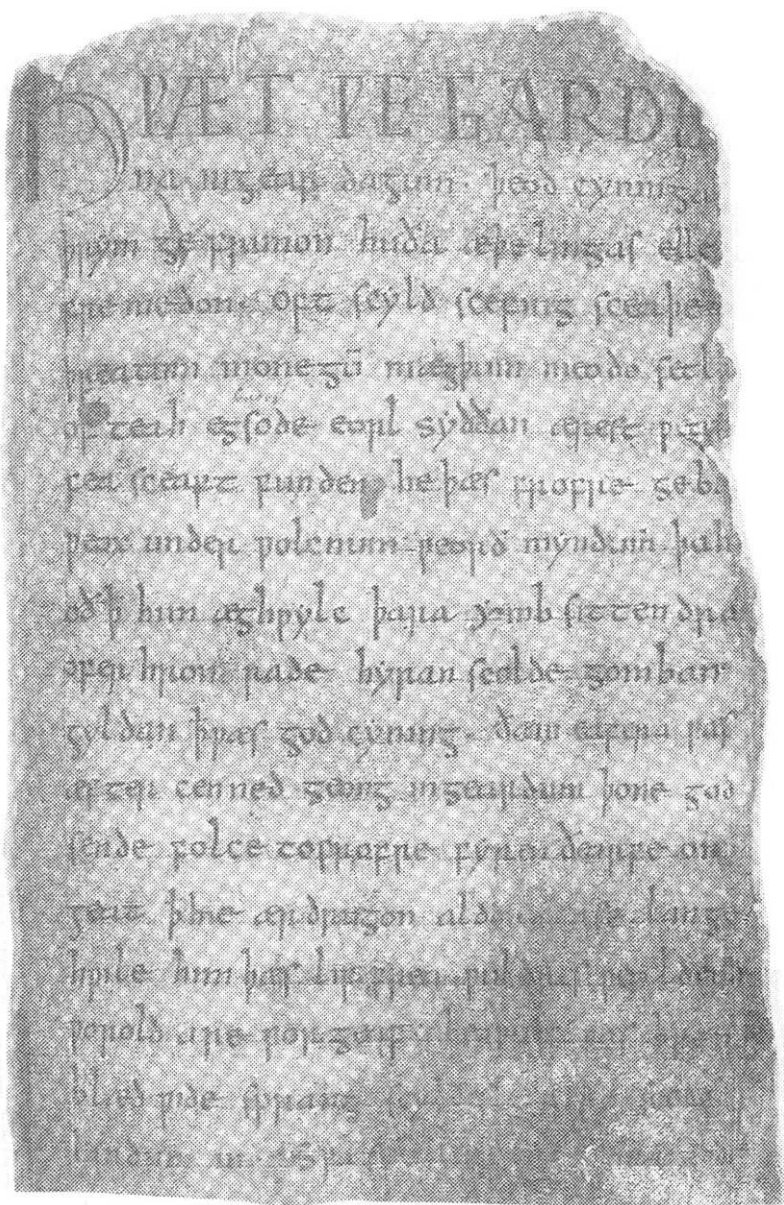 HǷÆT ǷE GARDE
na ingear dagum. þeod cyninga
þrym ge frunon huða æþelingas elle
fremedon. oft scyld scefing sceaþe
þreatum monegū mægþum meodo setla
of teah egsode eorl syððan ærest ƿear
fea sceaft funden he þæs frofre geba
ƿeox under ƿolcnum ƿeorð myndum þah
oð ꝥ him æghƿylc þara ymb sittendra
ofer hron rade hyran scolde gomban
gyldan ꝥ ƿæs god cyning. ðæm eafera ƿæs
æfter cenned geong ingeardum þone god
sende folce tofrofre fyren ðearfe on
geat ꝥ hie ær drugon lange
hƿile him þæs lif frea
ƿorold are for geaf
blæd ƿide sprang
landum in